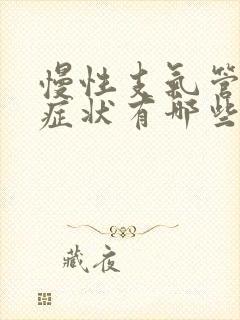 慢性支氣管
症状有哪些
藏夜